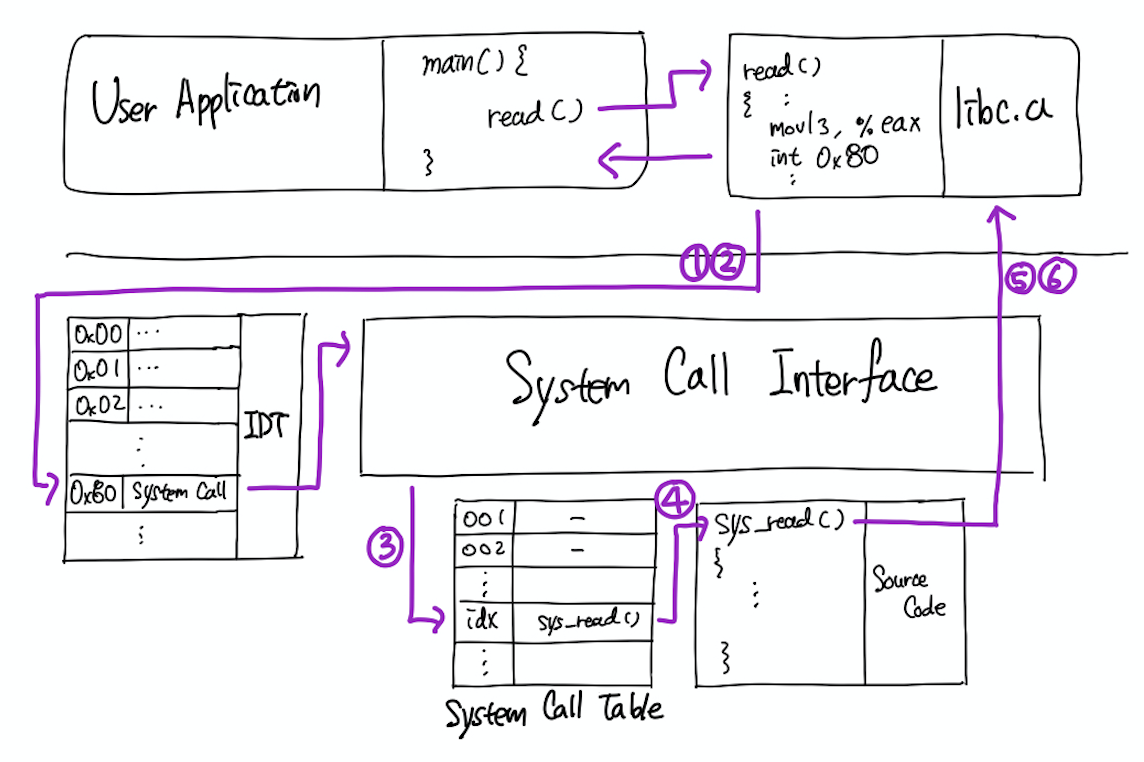 User Application
main() {
read()
}
read()
{ :
movl 3, %eax
int 0x80
:
libc.a
① ②
⑤ ⑥
0x00 ...
0x01 ...
0x02 ...
:
0x80 System Call
:
IDT
System Call Interface
③
001 -
002 -
:
idx sys_read()
:
System Call Table
④
sys_read()
{
:
}
Source
Code